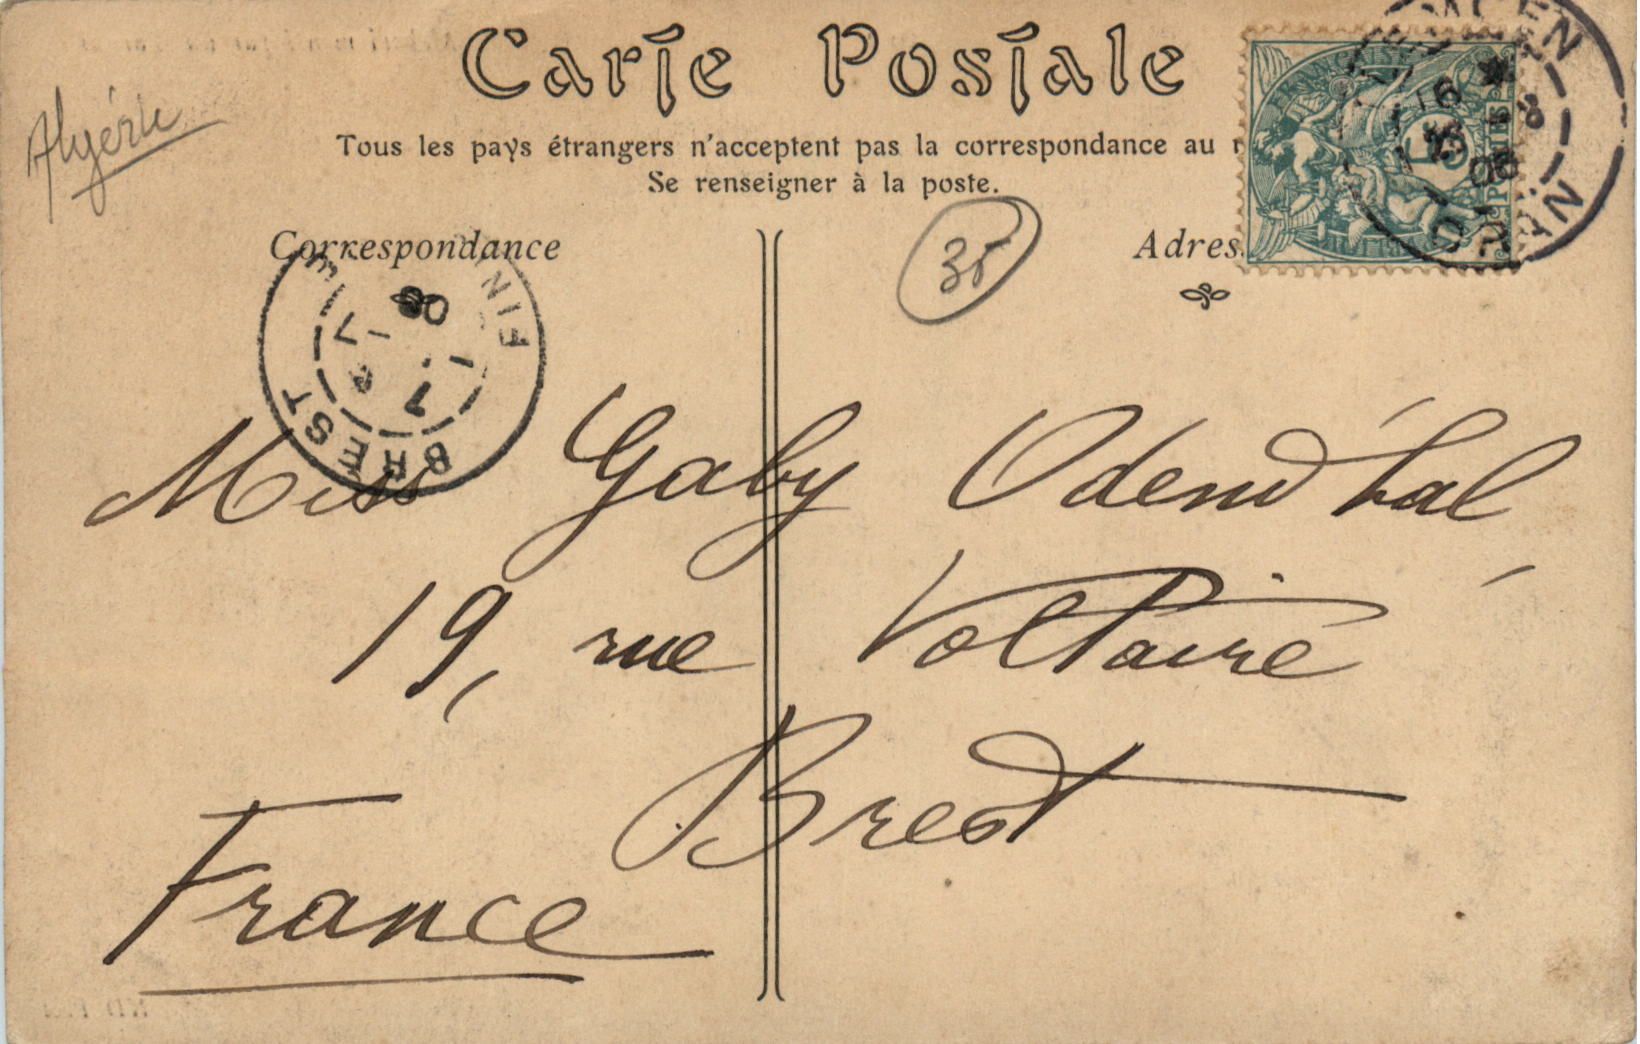 Carte Postale
Algérie
Tous les pays étrangers n'acceptent pas la correspondance au
Se renseigner à la poste.
Correspondance
Adres
35
BREST
FIN
08
ORAN
16
08
Miss Gaby Odend'hal
19, rue Voltaire
Brest
France